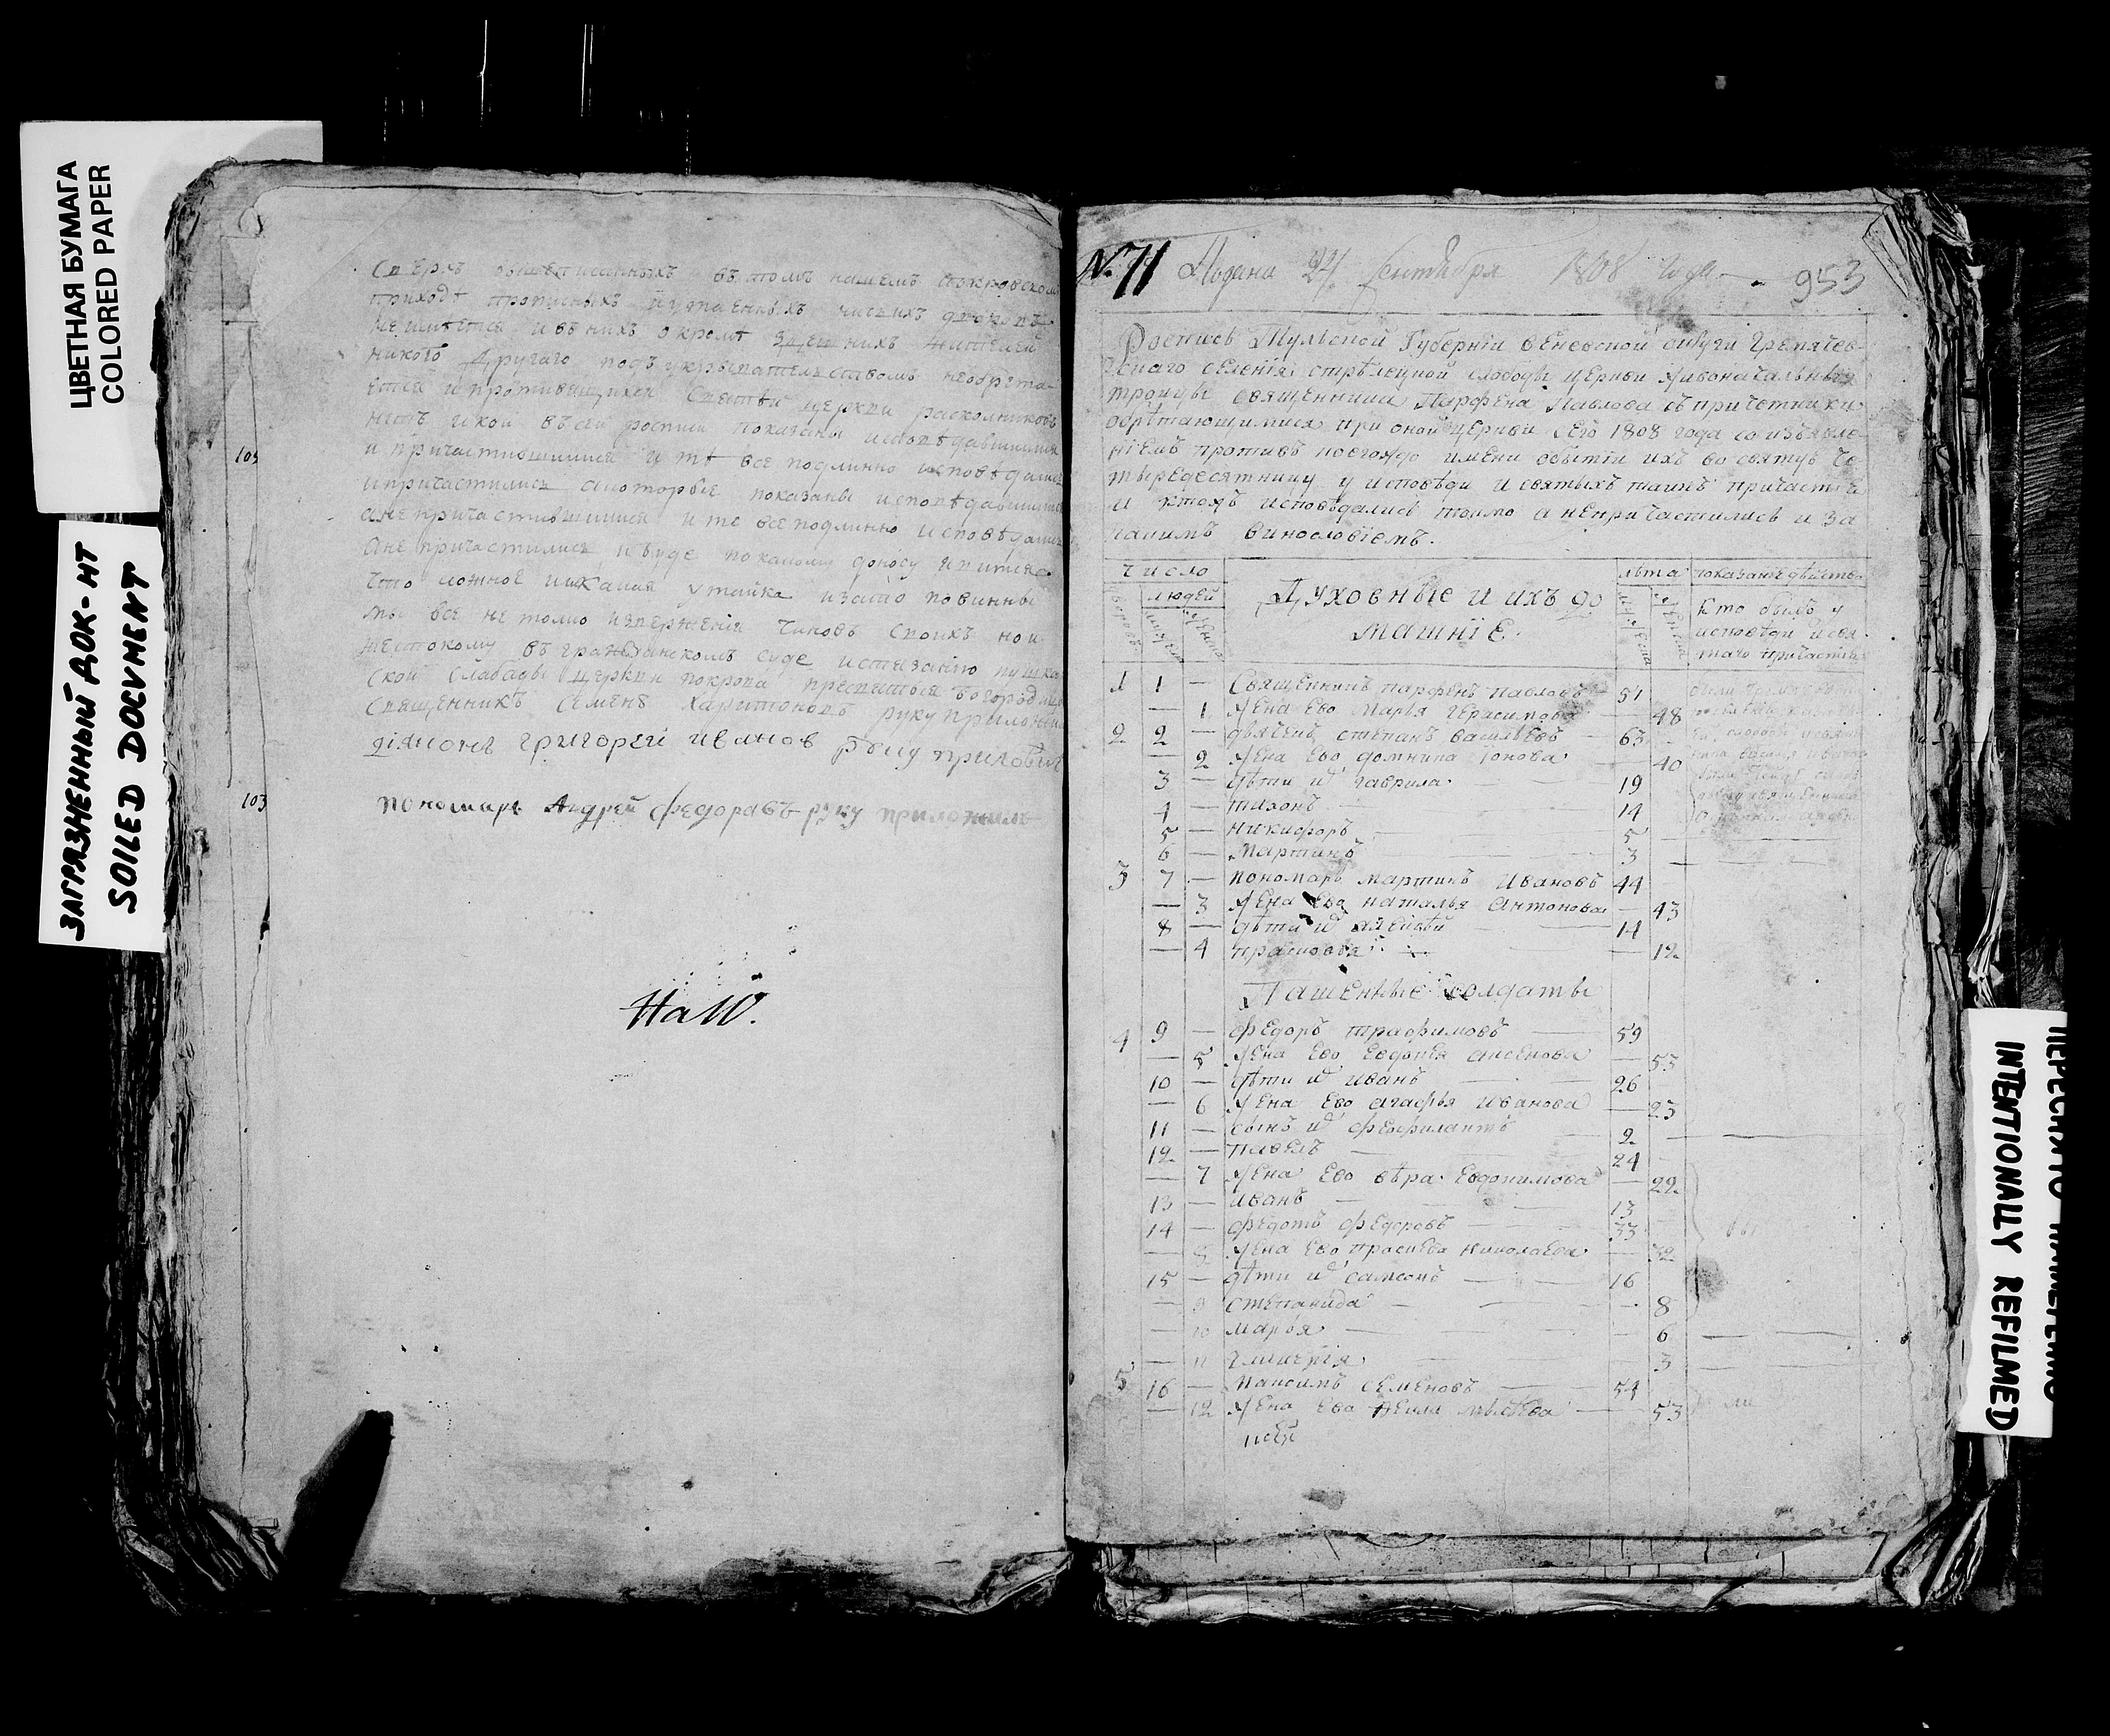 ЦВЕТНАЯ БУМАГА
COLORED PAPER
ЗАГРЯЗНЕННЫЙ ДОК-НТ
SOILED DOCUMENT
вышеписанныхъ въ томъ нашемъ покровском
приходѣ прописныхъ и утаенныхъ
неимѣется и въ нихъ окромѣ жителей
никого другаго подъ укрывателствомъ необрета-
ется и противящихся святѣй церкви расколниковъ
нетъ и кои въ сей росписи показаны исповѣдавшимися
и причастившимися и тѣ все подлинно исповѣдались
и причастились а которые показаны исповѣдавшимися
а не причастившимися и те все подлинно исповѣдались
а не причастились и буде по какому доносу явится
что ложное и какая утайка и за то повинны
мы все не толко извержения чиновъ своихъ но и
жестокому въ гражданскомъ суде истязанию пушкар
ской слабады церкви покрова пресвятыя богородицы
священникъ Семенъ Харитоновъ руку приложилъ
діяконъ григорей иванов руку приложилъ
103
пономарь Андрей федоравъ руку приложилъ
На 10.
№ 71 Подана 24 сентября 1808 года 953
Роспись Тулской Губерніи веневской округи Гремячев-
скаго селения стрѣлецкой слободы церкви живоначальныя
троицы священника Парфена Павлова съ причетники
обрѣтающимися при оной церкви сего 1808 года со изъявле-
ніемъ противъ коегождо имени о бытіи ихъ во святую че
тыредесятницу у исповѣди и святыхъ таинъ причастія
и ктожъ исповѣдались токмо а непричастились и за
какимъ винословіемъ.
число
людей
Духовные и ихъ до
машніе.
лѣта
показание дѣйства
Кто былъ у
исповѣди и свя
таго причастія
1 1 — Священникъ парфенъ павловъ — 57
— 1 жена ево марья герасимова — 48
2 2 — дьячекъ степанъ васильевъ — 63
— 2 жена ево домника ионова — 40
3 — дѣти их гаврила — 19
4 — 14
5 — никифоръ — 5
6 — мартинъ — 3
3 7 — пономарь мартинъ ивановъ 44
— 3 жена ево наталья антонова — 43
8 — дѣти их алексѣй — 14
— 4 прасковья — 12
Пашенные солдаты
4 9 — федоръ трафимовъ — 59
— 5 жена ево евдокия аксенова — 53
10 — дѣти их иванъ — 26
— 6 жена ево агафья иванова — 23
11 — сынъ их феофилактъ — 2
12 — павелъ — 24
— 7 жена ево вѣра евдокимова — 22
13 — иванъ — 13
14 — федотъ федоровъ — 33
— 8 жена ево прасковья николаева — 32
15 — дѣти их самсонъ — 16
— 9 степанида — 8
— 10 марья — 6
— 11 гликерія — 3
5 16 — максимъ семеновъ — 54
— 12 жена ево — 53
INTENTIONALLY REFILMED